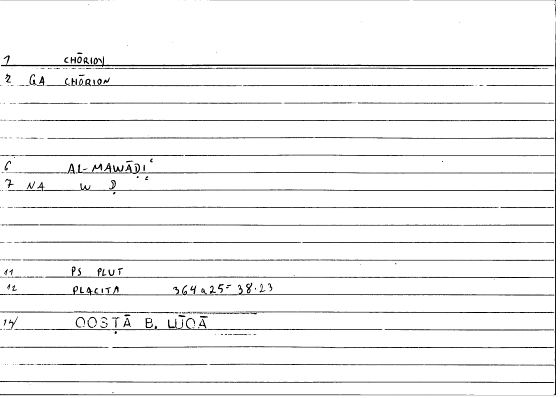 1 CHŌRION
2 GA CHŌRION
6 AL-MAWĀḌIʿ
7 NA W Ḍ ʿ
11 PS PLUT
12 PLACITA 364a25 = 38.23
14 QOSṬĀ B. LŪQĀ